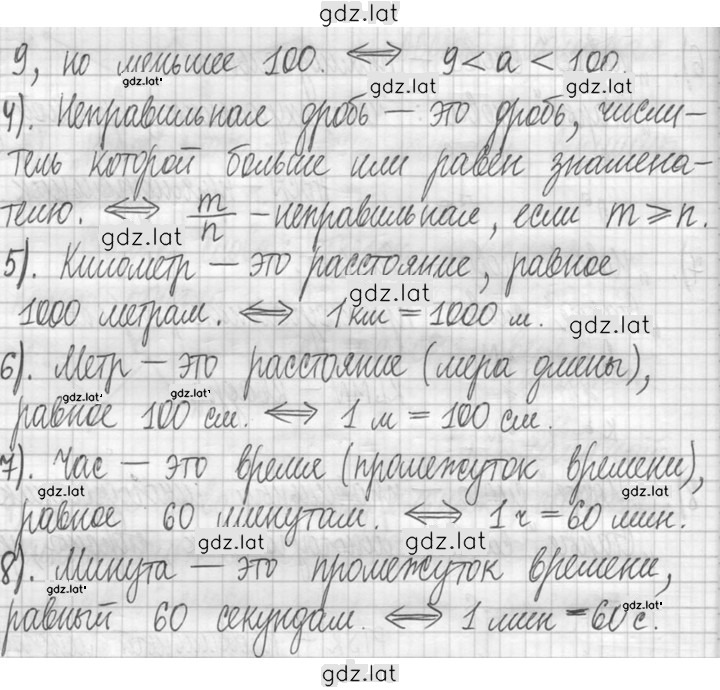 gdz.lat
9, но меньшее 100. ⟺ 9 < a < 100.
gdz.lat gdz.lat
4). Неправильная дробь — это дробь, числи-
тель которой больше или равен знамена-
телю. ⟺ m/n - неправильная, если m ⩾ n.
gdz.lat
5). Километр — это расстояние, равное
1000 метрам. ⟺ 1 км = 1000 м.
gdz.lat gdz.lat
6). Метр — это расстояние (мера длины),
gdz.lat gdz.lat
равное 100 см. ⟺ 1 м = 100 см.
7). Час — это время (промежуток времени),
gdz.lat gdz.lat
равное 60 минутам. ⟺ 1 ч = 60 мин.
gdz.lat gdz.lat
8). Минута — это промежуток времени,
gdz.lat
равный 60 секундам. ⟺ 1 мин = 60 с.
gdz.lat
gdz.lat